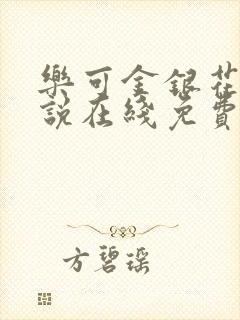 樂可金銀花
說在綫免費
方碧瑶